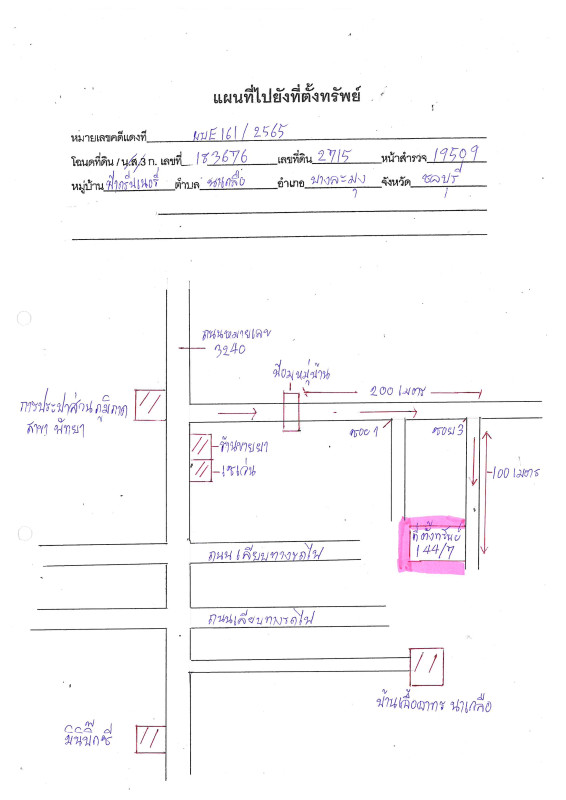 แผนที่ไปยังที่ตั้งทรัพย์
หมายเลขคดีแดงที่ ผบE161/2565
โฉนดที่ดิน / น.ส.3 ก. เลขที่ 183676 เลขที่ดิน 2715 หน้าสำรวจ 19509
หมู่บ้าน ตำบล นาเกลือ อำเภอ บางละมุง จังหวัด ชลบุรี
ถนนหมายเลข
3240
ป้อมหมู่บ้าน
200 เมตร
การประปาส่วนภูมิภาค
สาขา พัทยา
ซอย 1
ซอย 3
ร้านขายยา
เซเว่น
100 เมตร
ที่ตั้งทรัพย์
144/7
ถนนเลียบทางรถไฟ
ถนนเลียบทางรถไฟ
บ้านเอื้ออาทร นาเกลือ
มินิบิ๊กซี